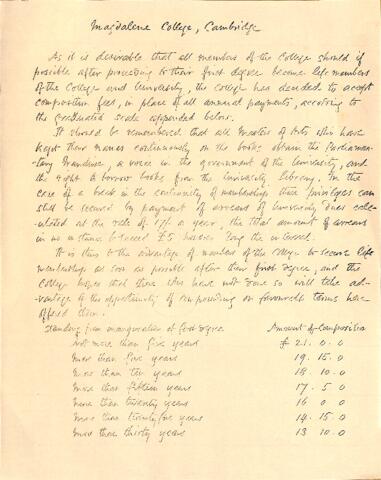 Magdalene College, Cambridge
As it is desirable that all members of the College should if
possible after proceeding to their first degree become life members
of the College and University, the College has decided to accept
composition fees, in place of all annual payments, according to
the graduated scale appended below.
It should be remembered that all Masters of Arts who have
kept their names continuously on the books obtain the Parliamen-
tary Franchise, a voice in the government of the University, and
the right to borrow books from the University Library. In the
case of a break in the continuity of membership these privileges can
still be secured by payment of arrears of University dues calc-
ulated at the rate of 17/- a year, the total amount of arrears
in no instance to exceed £5 however long the interval.
It is thus to the advantage of members of the College to secure life
membership as soon as possible after their first degree, and the
College hopes that those who have not done so will take ad-
vantage of the opportunity of compounding on favourable terms here
offered them.
Standing from inauguration of first degree Amount of Composition
Not more than five years £ 21. 0. 0
more than five years 19. 15. 0
more than ten years 18. 10. 0
more than fifteen years 17. 5. 0
more than twenty years 16. 0. 0
more than twenty five years 14. 15. 0
more than thirty years 13. 10. 0